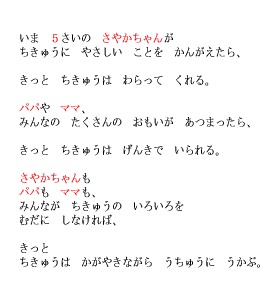 いま　５さいの　さやかちゃんが
ちきゅうに　やさしい　ことを　かんがえたら、
きっと　ちきゅうは　わらって　くれる。
パパや　ママ、
みんなの　たくさんの　おもいが　あつまったら、
きっと　ちきゅうは　げんきで　いられる。
さやかちゃんも
パパも　ママも、
みんなが　ちきゅうの　いろいろを
むだに　しなければ、
きっと
ちきゅうは　かがやきながら　うちゅうに　うかぶ。